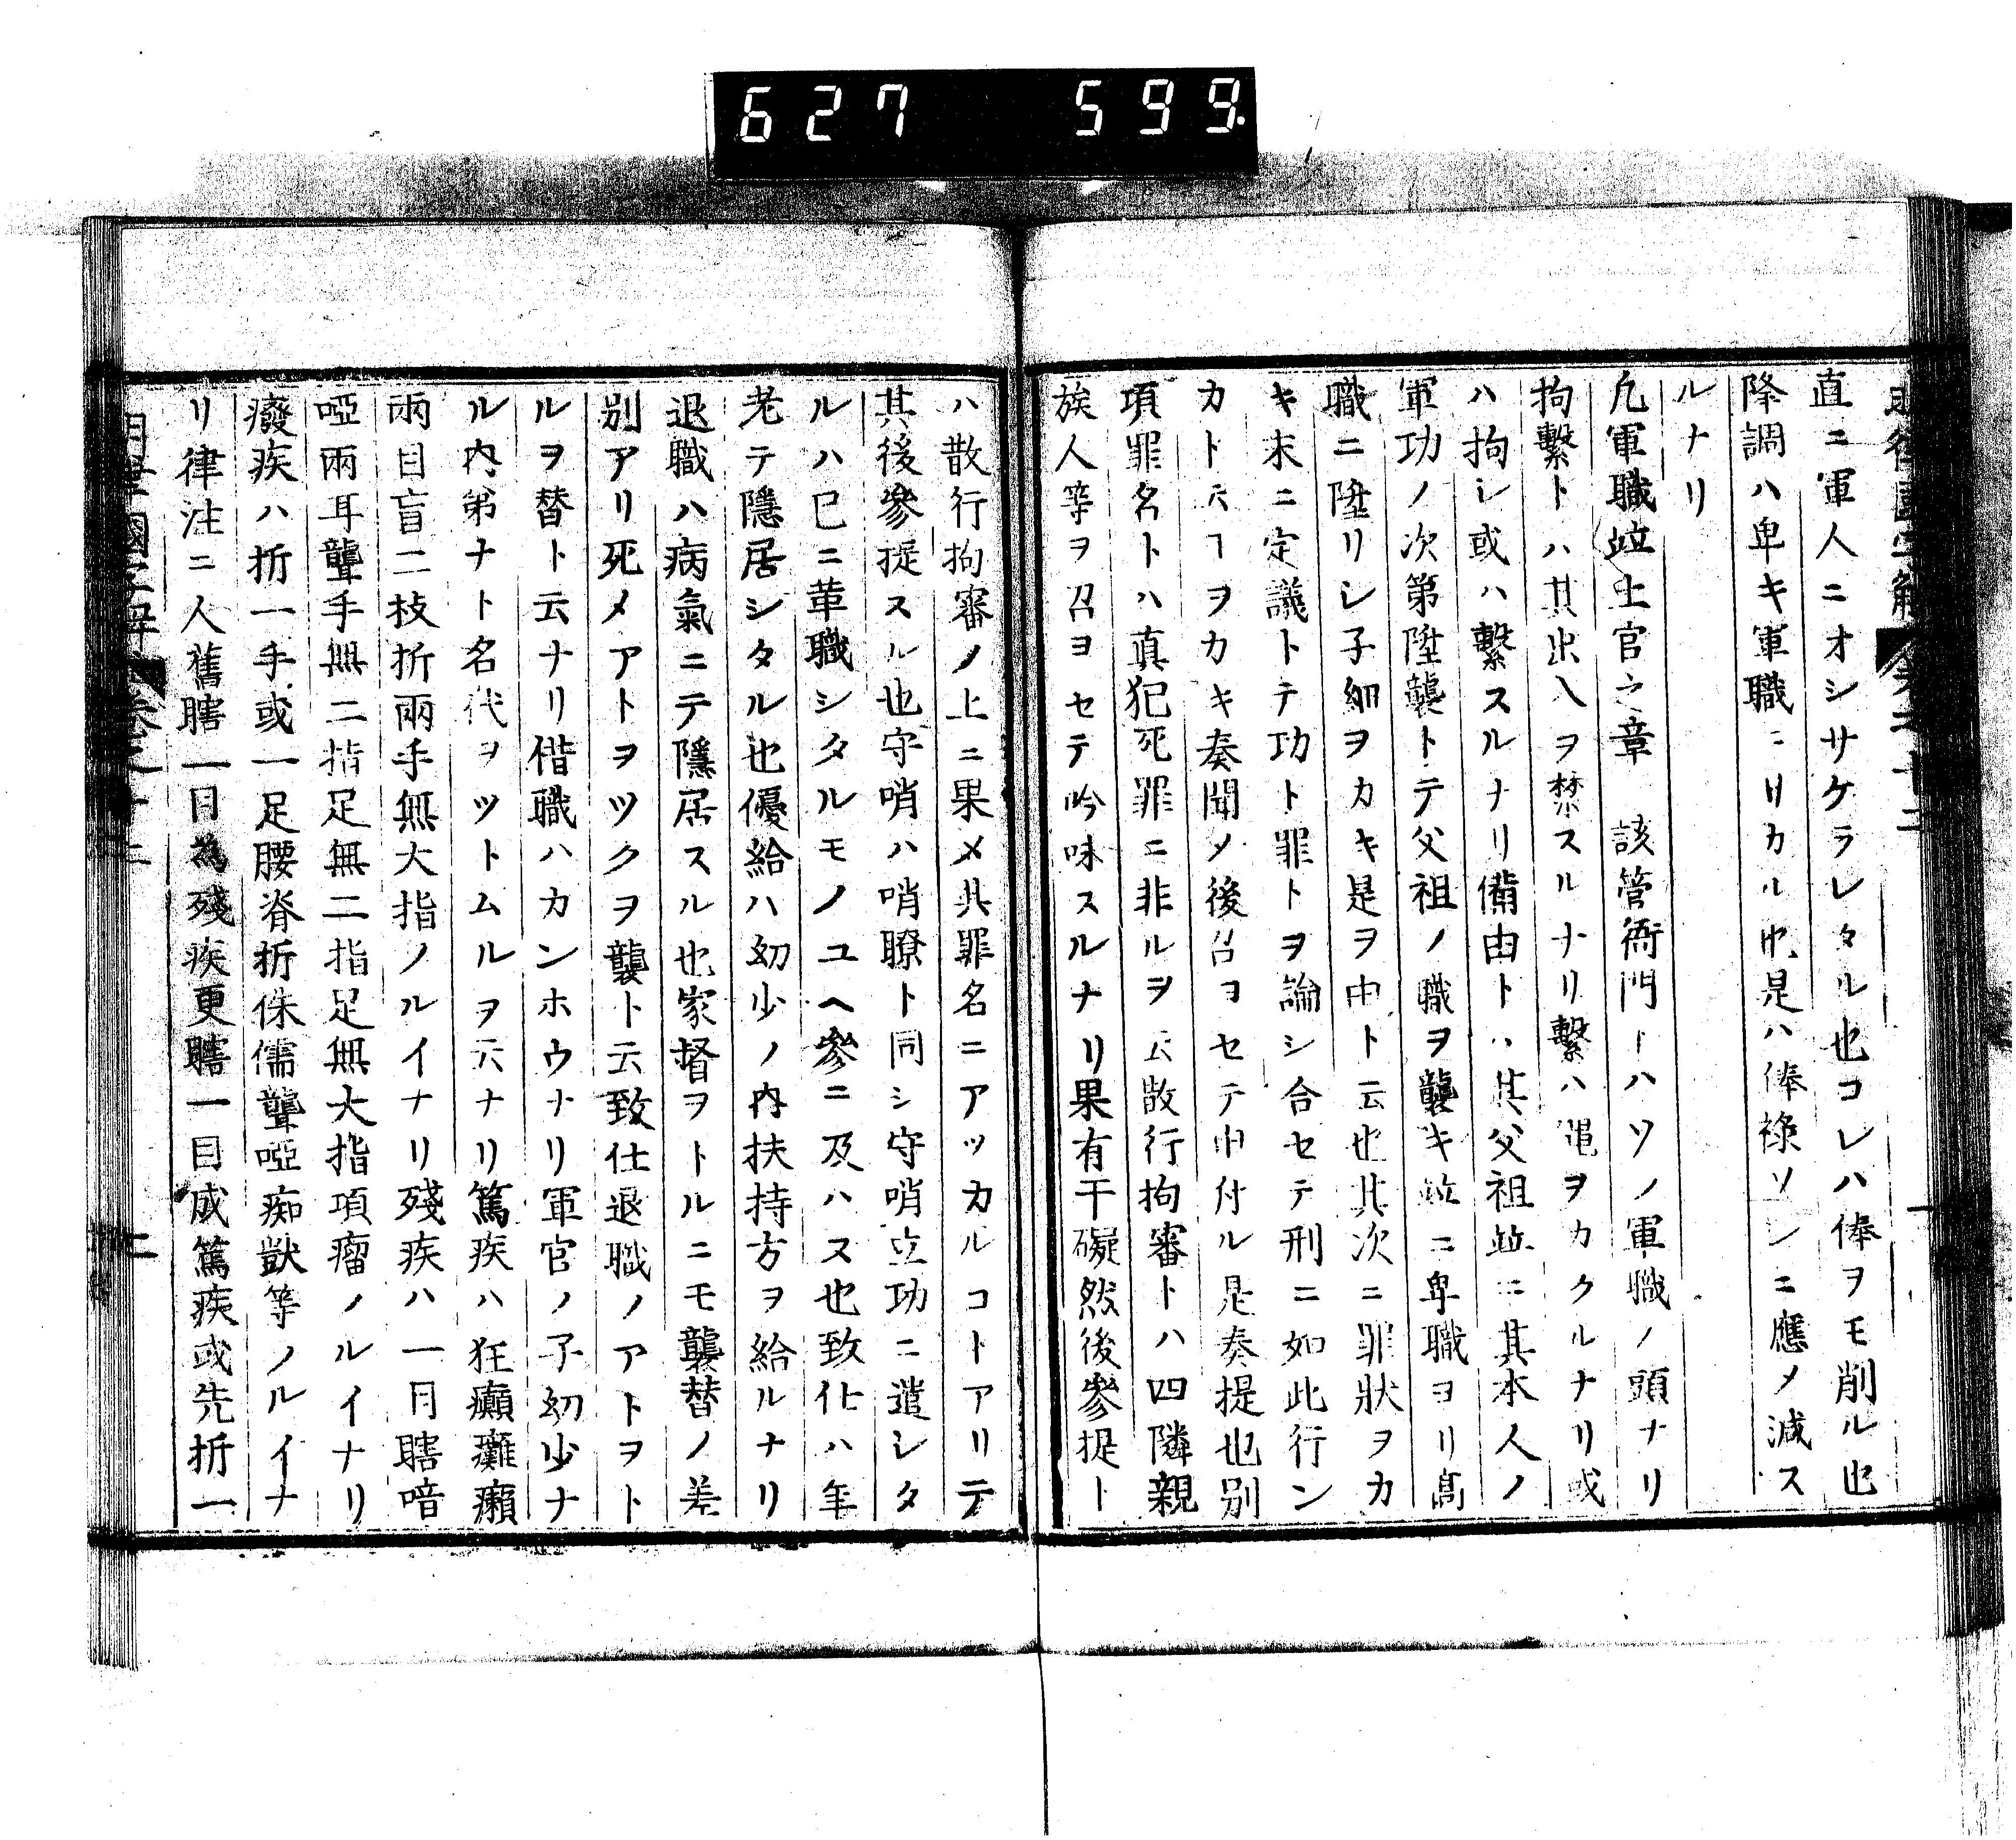 627 599.
直ニ軍人ニオシサケラレタル也コレハ俸ヲモ削ル也
降調ハ卑キ軍職ニサカル也是ハ俸祿ソレニ應メ減ス
ルナリ
凡軍職竝土官之章 該管衙門トハソノ軍職ノ頭ナリ
拘繫トハ其出入ヲ禁スルナリ繫ハ縄ヲカクルナリ或
ハ拘シ或ハ繫スルナリ備由トハ其父祖竝ニ其本人ノ
軍功ノ次第陞襲トテ父祖ノ職ヲ襲キ竝ニ卑職ヨリ髙
職ニ陞リシ子細ヲカキ是ヲ申ト云也其次ニ罪狀ヲカ
キ末ニ定議トテ功ト罪トヲ論シ合セテ刑ニ如此行ン
カト云ヿヲカキ奏聞メ後召ヨセテ申付ル是奏提也別
項罪名トハ真犯死罪ニ非ルヲ云散行拘審トハ四隣親
族人等ヲ召ヨセテ吟味スルナリ果有干礙然後參提ト
ハ散行拘審ノ上ニ果メ其罪名ニアツカルコトアリテ
其後參提スル也守哨ハ哨瞭ト同シ守哨立功ニ遣シタ
ルハ已ニ革職シタルモノユヘ參ニ及ハス也致仕ハ年
老テ隱居シタル也優給ハ幼少ノ内扶持方ヲ給ルナリ
退職ハ病氣ニテ隱居スル也家督ヲトルニモ襲替ノ差
別アリ死メアトヲツクヲ襲ト云致仕退職ノアトヲト
ルヲ替ト云ナリ借職ハカンホウナリ軍官ノ子幼少ナ
ル内弟ナト名代ヲツトムルヲ云ナリ篤疾ハ狂癲癱癩
兩目盲二枝折兩手無大指ノルイナリ殘疾ハ一目瞎喑
啞兩耳聾手無二指足無二指足無大指項瘤ノルイナリ
癈疾ハ折一手或一足腰脊折侏儒聾啞痴獃等ノルイナ
リ律注ニ人舊瞎一目為殘疾更瞎一目成篤疾或先折一
明律國字解 卷之十二 二